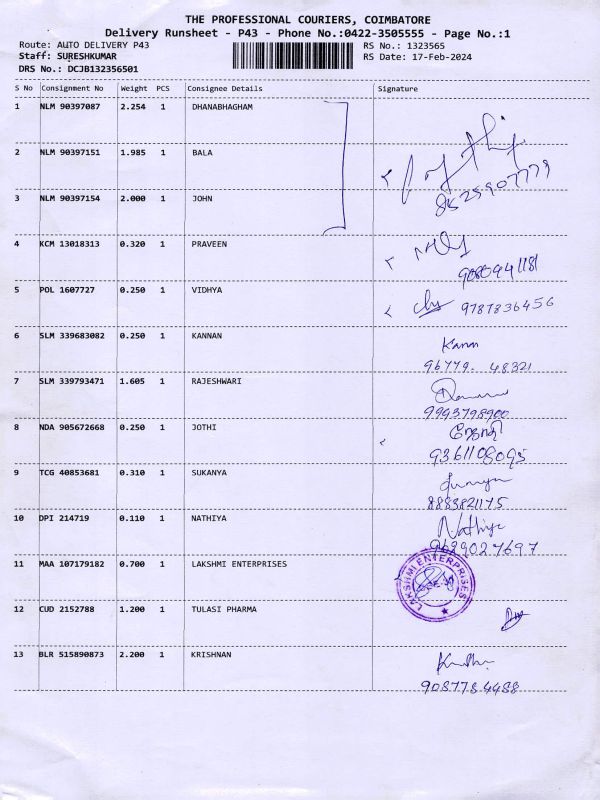 THE PROFESSIONAL COURIERS, COIMBATORE
Delivery Runsheet - P43 - Phone No.:0422-3505555 - Page No.:1
Route: AUTO DELIVERY P43 RS No.: 1323565
Staff: SURESHKUMAR RS Date: 17-Feb-2024
DRS No.: DCJB132356501
S No Consignment No Weight PCS Consignee Details Signature
1 NLM 90397087 2.254 1 DHANABHAGHAM
2 NLM 90397151 1.985 1 BALA
8525907779
3 NLM 90397154 2.000 1 JOHN
4 KCM 13018313 0.320 1 PRAVEEN
9080941181
5 POL 1607727 0.250 1 VIDHYA
9787836456
6 SLM 339683082 0.250 1 KANNAN
96779. 48321
7 SLM 339793471 1.605 1 RAJESHWARI
9993798900
8 NDA 905672668 0.250 1 JOTHI
9361108095
9 TCG 40853681 0.310 1 SUKANYA
8883821175
10 DPI 214719 0.110 1 NATHIYA Nathiya
9629027697
11 MAA 107179182 0.700 1 LAKSHMI ENTERPRISES
LAKSHMI ENTERPRISES
12 CUD 2152788 1.200 1 TULASI PHARMA
13 BLR 515890873 2.200 1 KRISHNAN
9087784488